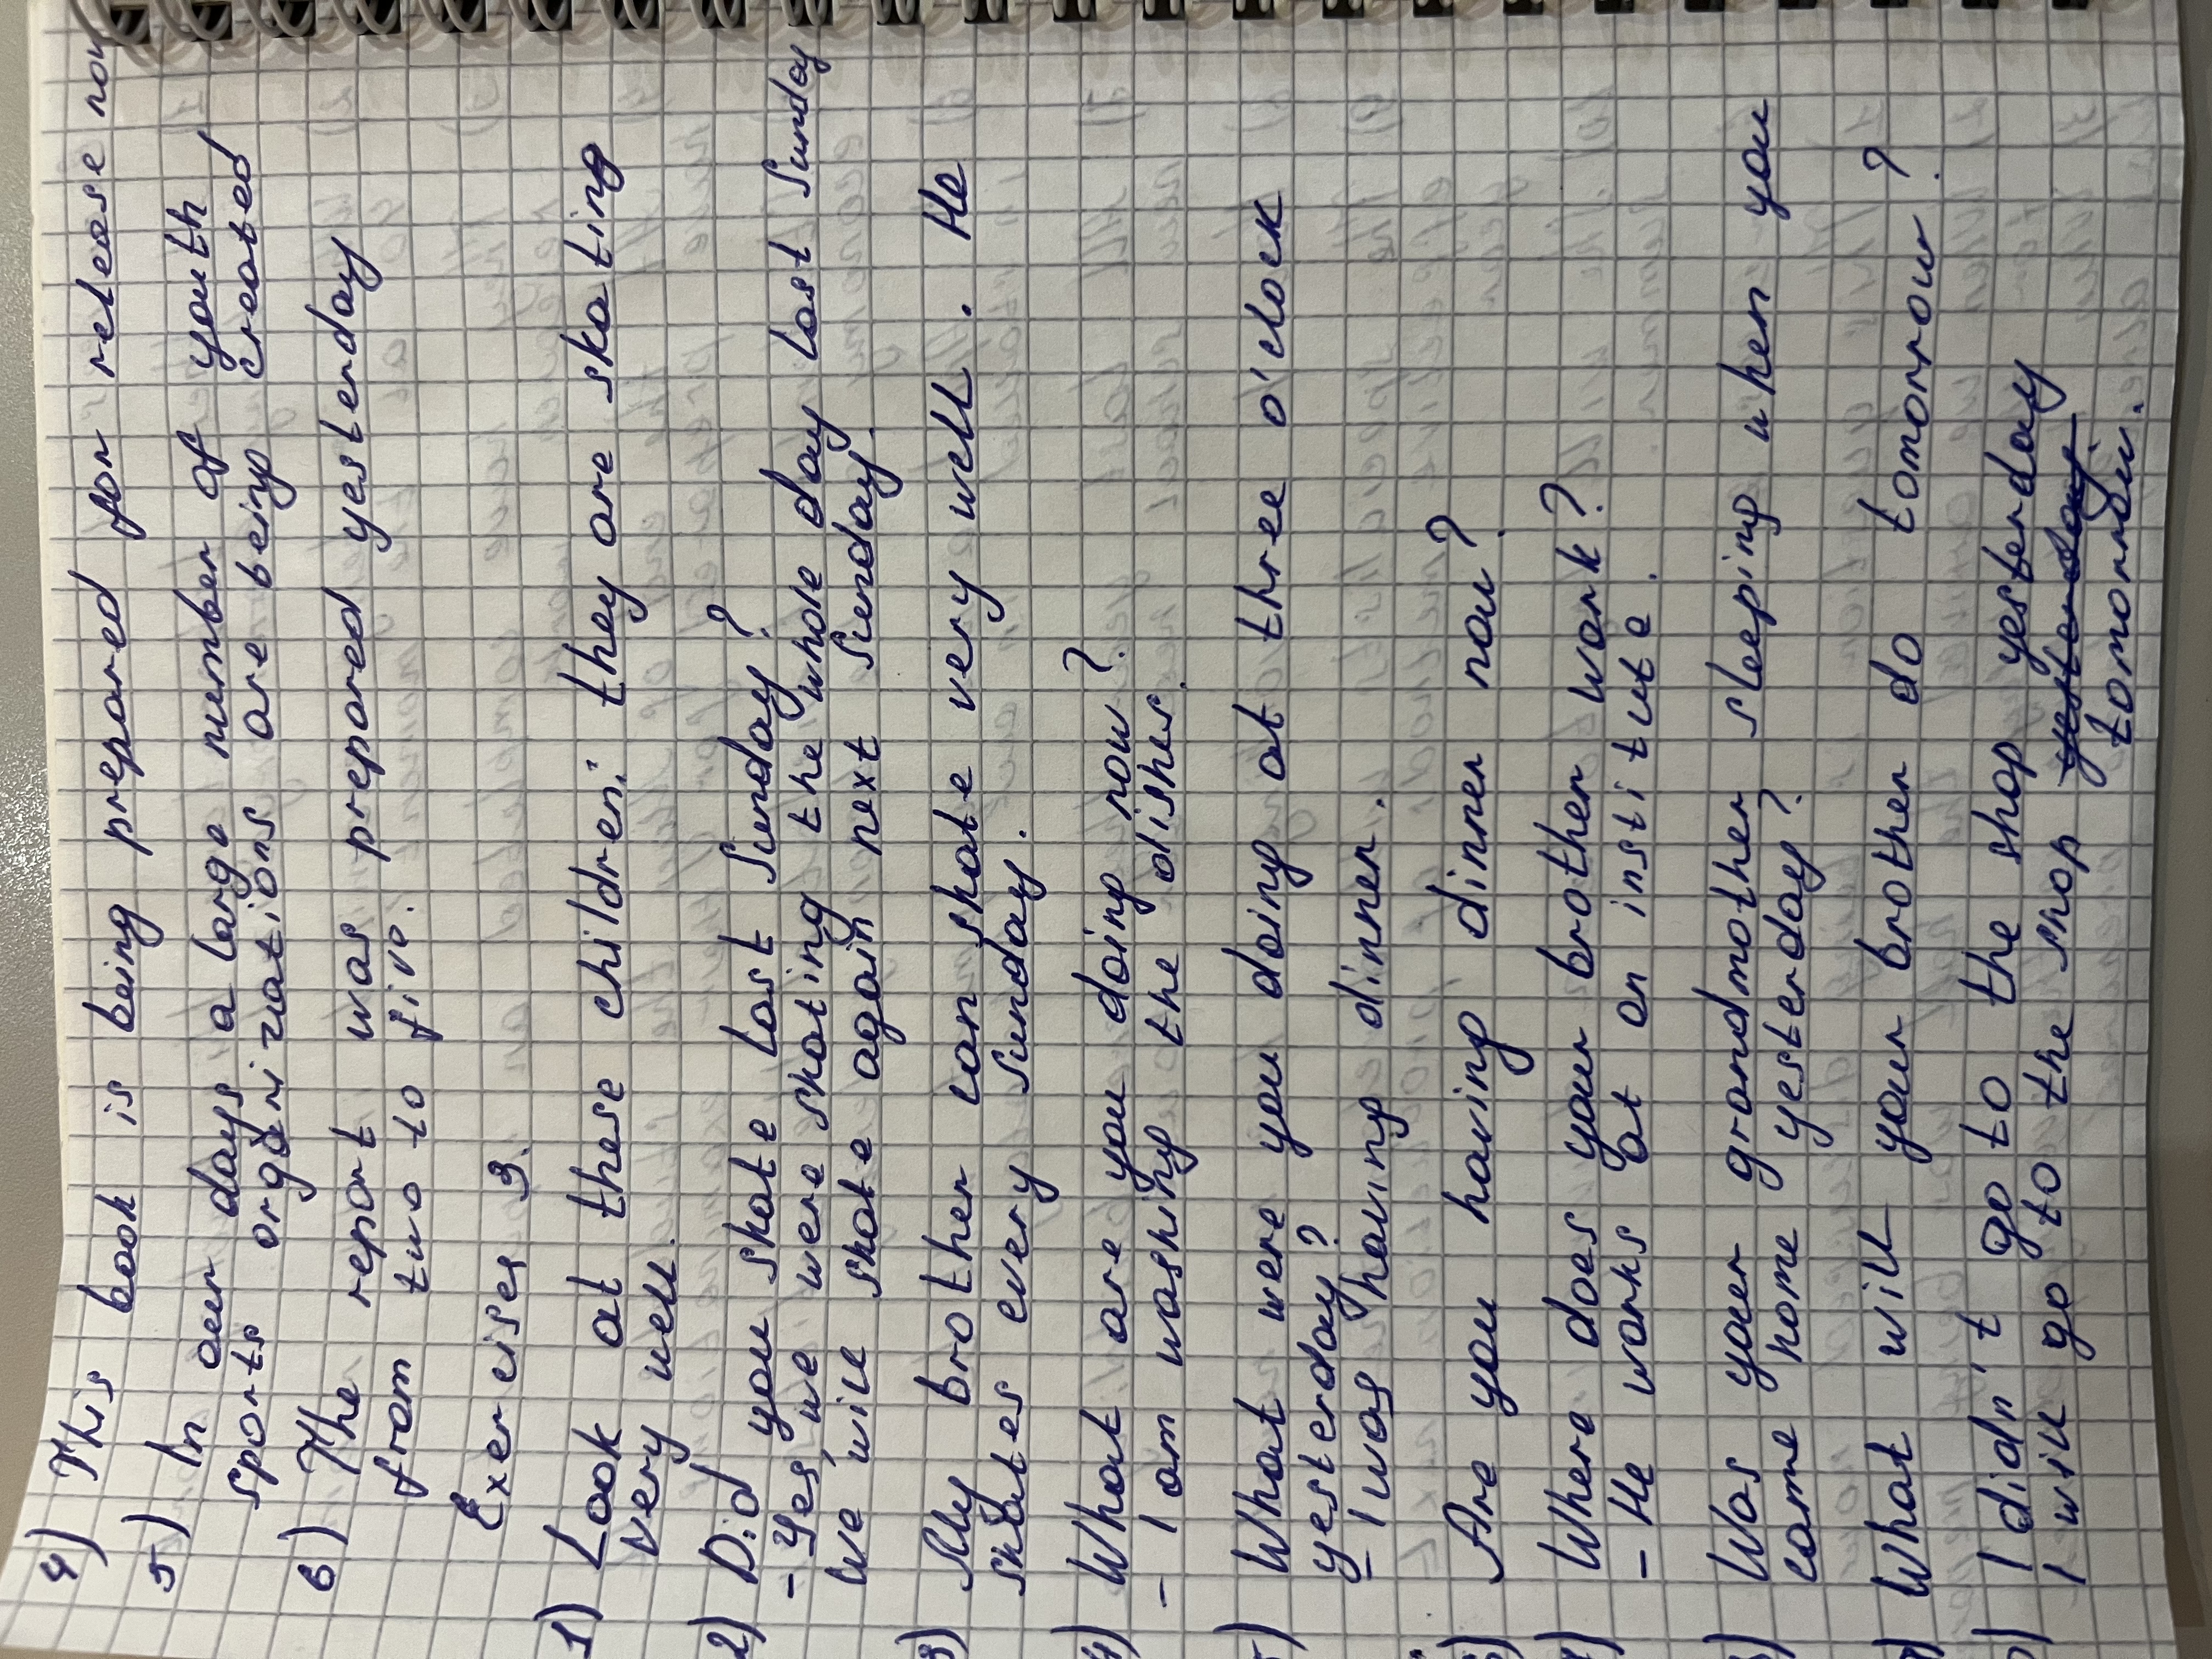 4) This book is being prepared for release now
5) In our days a large number of youth
sports organizations are being created
6) The report was prepared yesterday
from two to five.
Exercises 9.
1) Look at these children: they are skating
very well.
2) Did you skate last Sunday?
- Yes, we were skating the whole day last Sunday
We will skate again next Sunday.
3) My brother can skate very well. He
skates every Sunday.
4) What are you doing now?
- I am washing the dishes.
5) What were you doing at three o'clock
yesterday?
- I was having dinner.
Are you having dinner now?
Where does your brother work?
- He works at an institute.
Was your grandmother sleeping when you
came home yesterday?
What will your brother do tomorrow?
I didn't go to the shop yesterday
I will go to the shop yesterday
tomorrow.